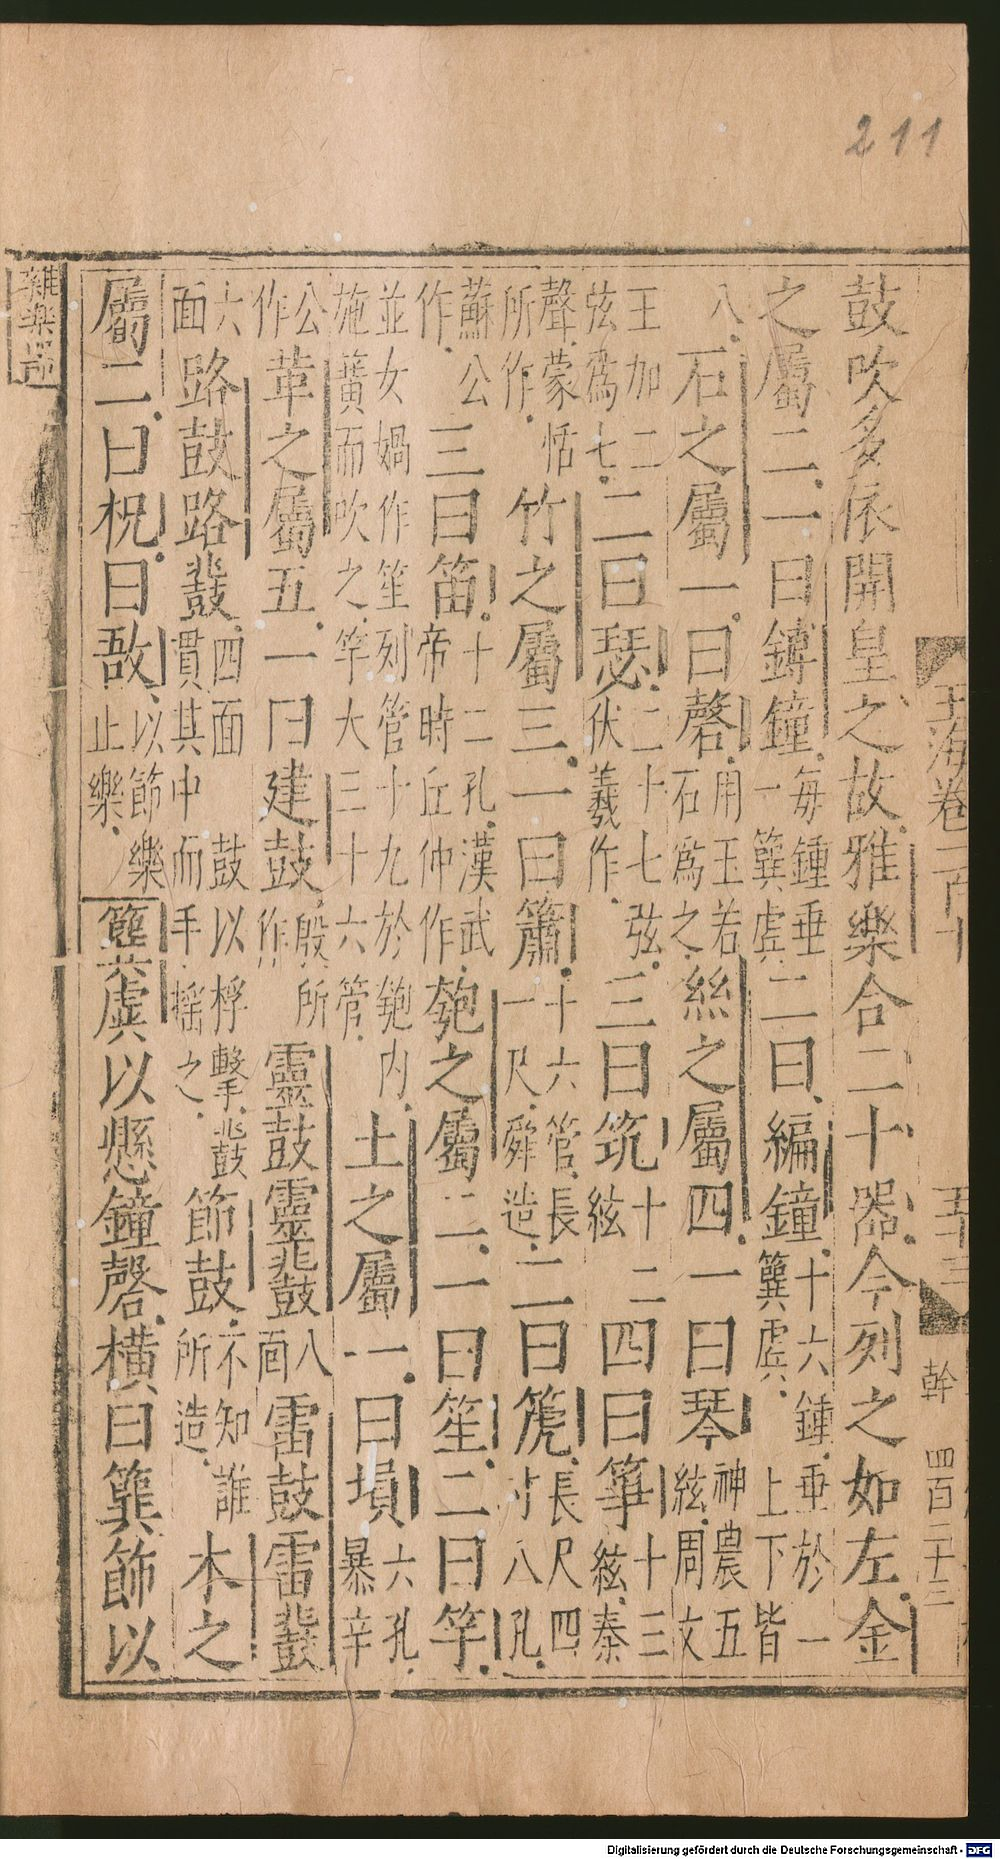 211
玉海卷一百十 五十三 幹 四百二十三
鼓吹多依開皇之故雅樂合二十器今列之如左金
之屬二一曰鎛鐘每鍾垂一簨虡二曰編鐘十六鍾垂於一簨虡上下皆
八石之屬一曰磬用玉若石爲之絲之屬四一曰琴神農五絃周文
王加二弦爲七二曰瑟二十七弦伏羲作三曰筑十二絃四曰箏十三絃秦
聲蒙恬所作竹之屬三一曰簫十六管長一尺舜造二曰箎長尺四寸八孔
蘇公作三曰笛十二孔漢武帝時丘仲作匏之屬二一曰笙二曰竽
並女媧作笙列管十九於匏內施簧而吹之竽大三十六管土之屬一曰塤六孔暴辛
公作革之屬五一曰建鼓殷所作靈鼓靈鼗八面雷鼓雷鼗
六面路鼓路鼗四面鼓以桴擊鼗貫其中而手搖之節鼓不知誰所造木之
屬二曰柷曰敔以節樂止樂簨虡以懸鐘磬橫曰簨飾以
雜樂
Digitalisierung gefördert durch die Deutsche Forschungsgemeinschaft - DFG